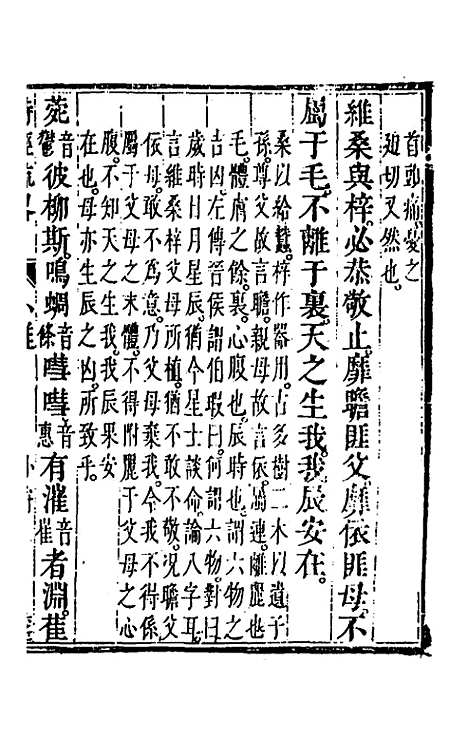 首頭痛憂之
迫切又然也
維桑與梓。必恭敬止。靡瞻匪父。靡依匪母。不
屬于毛。不離于裏。天之生我。我辰安在。
桑以給蠶。梓作器用。古多樹二木以遺子
孫。尊父故言瞻。親母故言依。屬連。離麗也
毛。體膚之餘。裏。心腹也。辰時也。謂六物之
吉凶。左傳晉侯謂伯瑕曰。何謂六物。對曰
歲時日月星辰。猶今星士談命。論八字耳。
言維桑梓父母所植。猶不敢不敬。况瞻父
依母。敢不爲意。乃父母棄我。今我不得係
屬于父母之末體。不得附麗于父母之心
腹。不知天之生我。我辰果安
在也。毋亦生辰之凶。所致乎。
菀音鬱彼柳斯。鳴蜩音條嘒嘒音惠有漼音崔者淵。萑
小雅